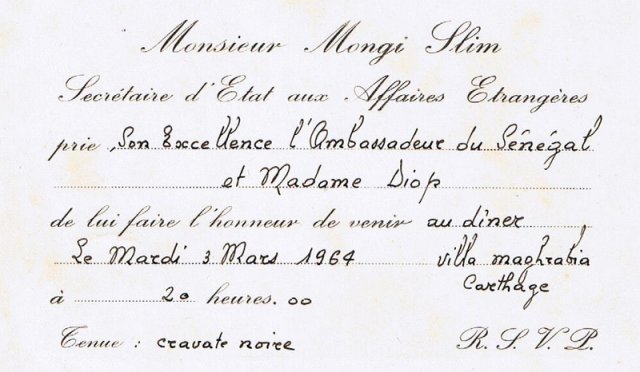 Monsieur Mongi Slim
Secrétaire d'Etat aux Affaires Etrangères
prie Son Excellence l'Ambassadeur du Sénégal
et Madame Diop
de lui faire l'honneur de venir au dîner
Le Mardi 3 Mars 1964 villa maghrabia
Carthage
à 20 heures. 00
Tenue : cravate noire R. S. V. P.